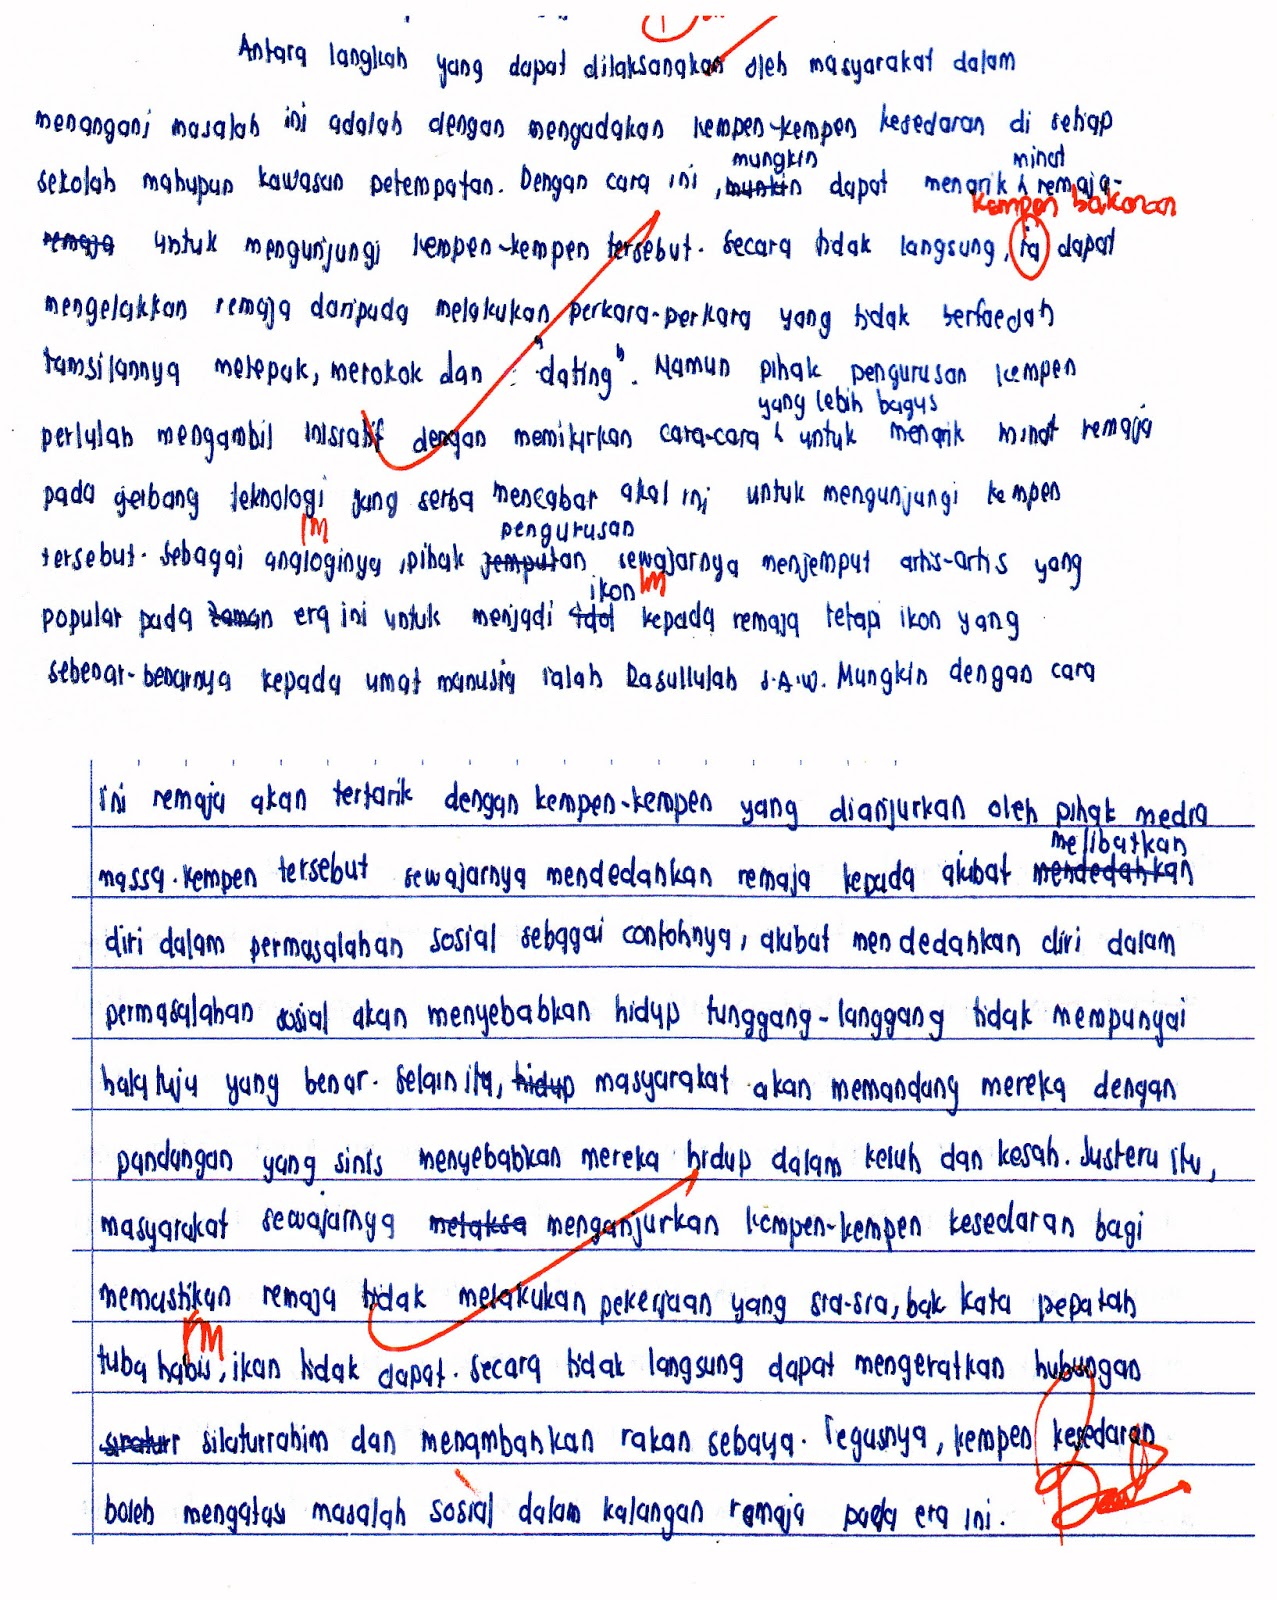 Antara langkah yang dapat dilaksanakan oleh masyarakat dalam
menangani masalah ini adalah dengan mengadakan kempen-kempen kesedaran di setiap
mungkin minat
sekolah mahupun kawasan petempatan. Dengan cara ini, munkin dapat menarik ʎ remaja-
kempen bakonan
remaja untuk mengunjungi kempen-kempen tersebut. Secara tidak langsung, ia dapat
mengelakkan remaja daripada melakukan perkara-perkara yang tidak berfaedah
tamsilannya melepak, merokok dan "dating". Namun pihak pengurusan kempen
yang lebih bagus
perlulah mengambil inisiatif dengan memikirkan cara-cara ʎ untuk menarik minat remaja
pada gerbang teknologi yang serba mencabar akal ini untuk mengunjungi kempen
m pengurusan
tersebut. Sebagai analoginya, pihak jemputan sewajarnya menjemput artis-artis yang
ikon m
popular pada zaman era ini untuk menjadi idol kepada remaja tetapi ikon yang
sebenar-benarnya kepada umat manusia ialah Rasullulah S.A.W. Mungkin dengan cara
ini remaja akan tertarik dengan kempen-kempen yang dianjurkan oleh pihak media
melibatkan
massa. Kempen tersebut sewajarnya mendedahkan remaja kepada akibat mendedahkan
diri dalam permasalahan sosial sebagai contohnya, akibat mendedahkan diri dalam
permasalahan sosial akan menyebabkan hidup tunggang-langgang tidak mempunyai
halatuju yang benar. Selain itu, hidup masyarakat akan memandang mereka dengan
pandangan yang sinis menyebabkan mereka hidup dalam keluh dan kesah. Justeru itu,
masyarakat sewajarnya melaksa menganjurkan kempen-kempen kesedaran bagi
memastikan remaja tidak melakukan pekerjaan yang sia-sia, bak kata pepatah
m
tuba habis, ikan tidak dapat. Secara tidak langsung dapat mengeratkan hubungan
silaturrahim dan menambahkan rakan sebaya. Tegasnya, kempen kesedaran
boleh mengatasi masalah sosial dalam kalangan remaja pada era ini.